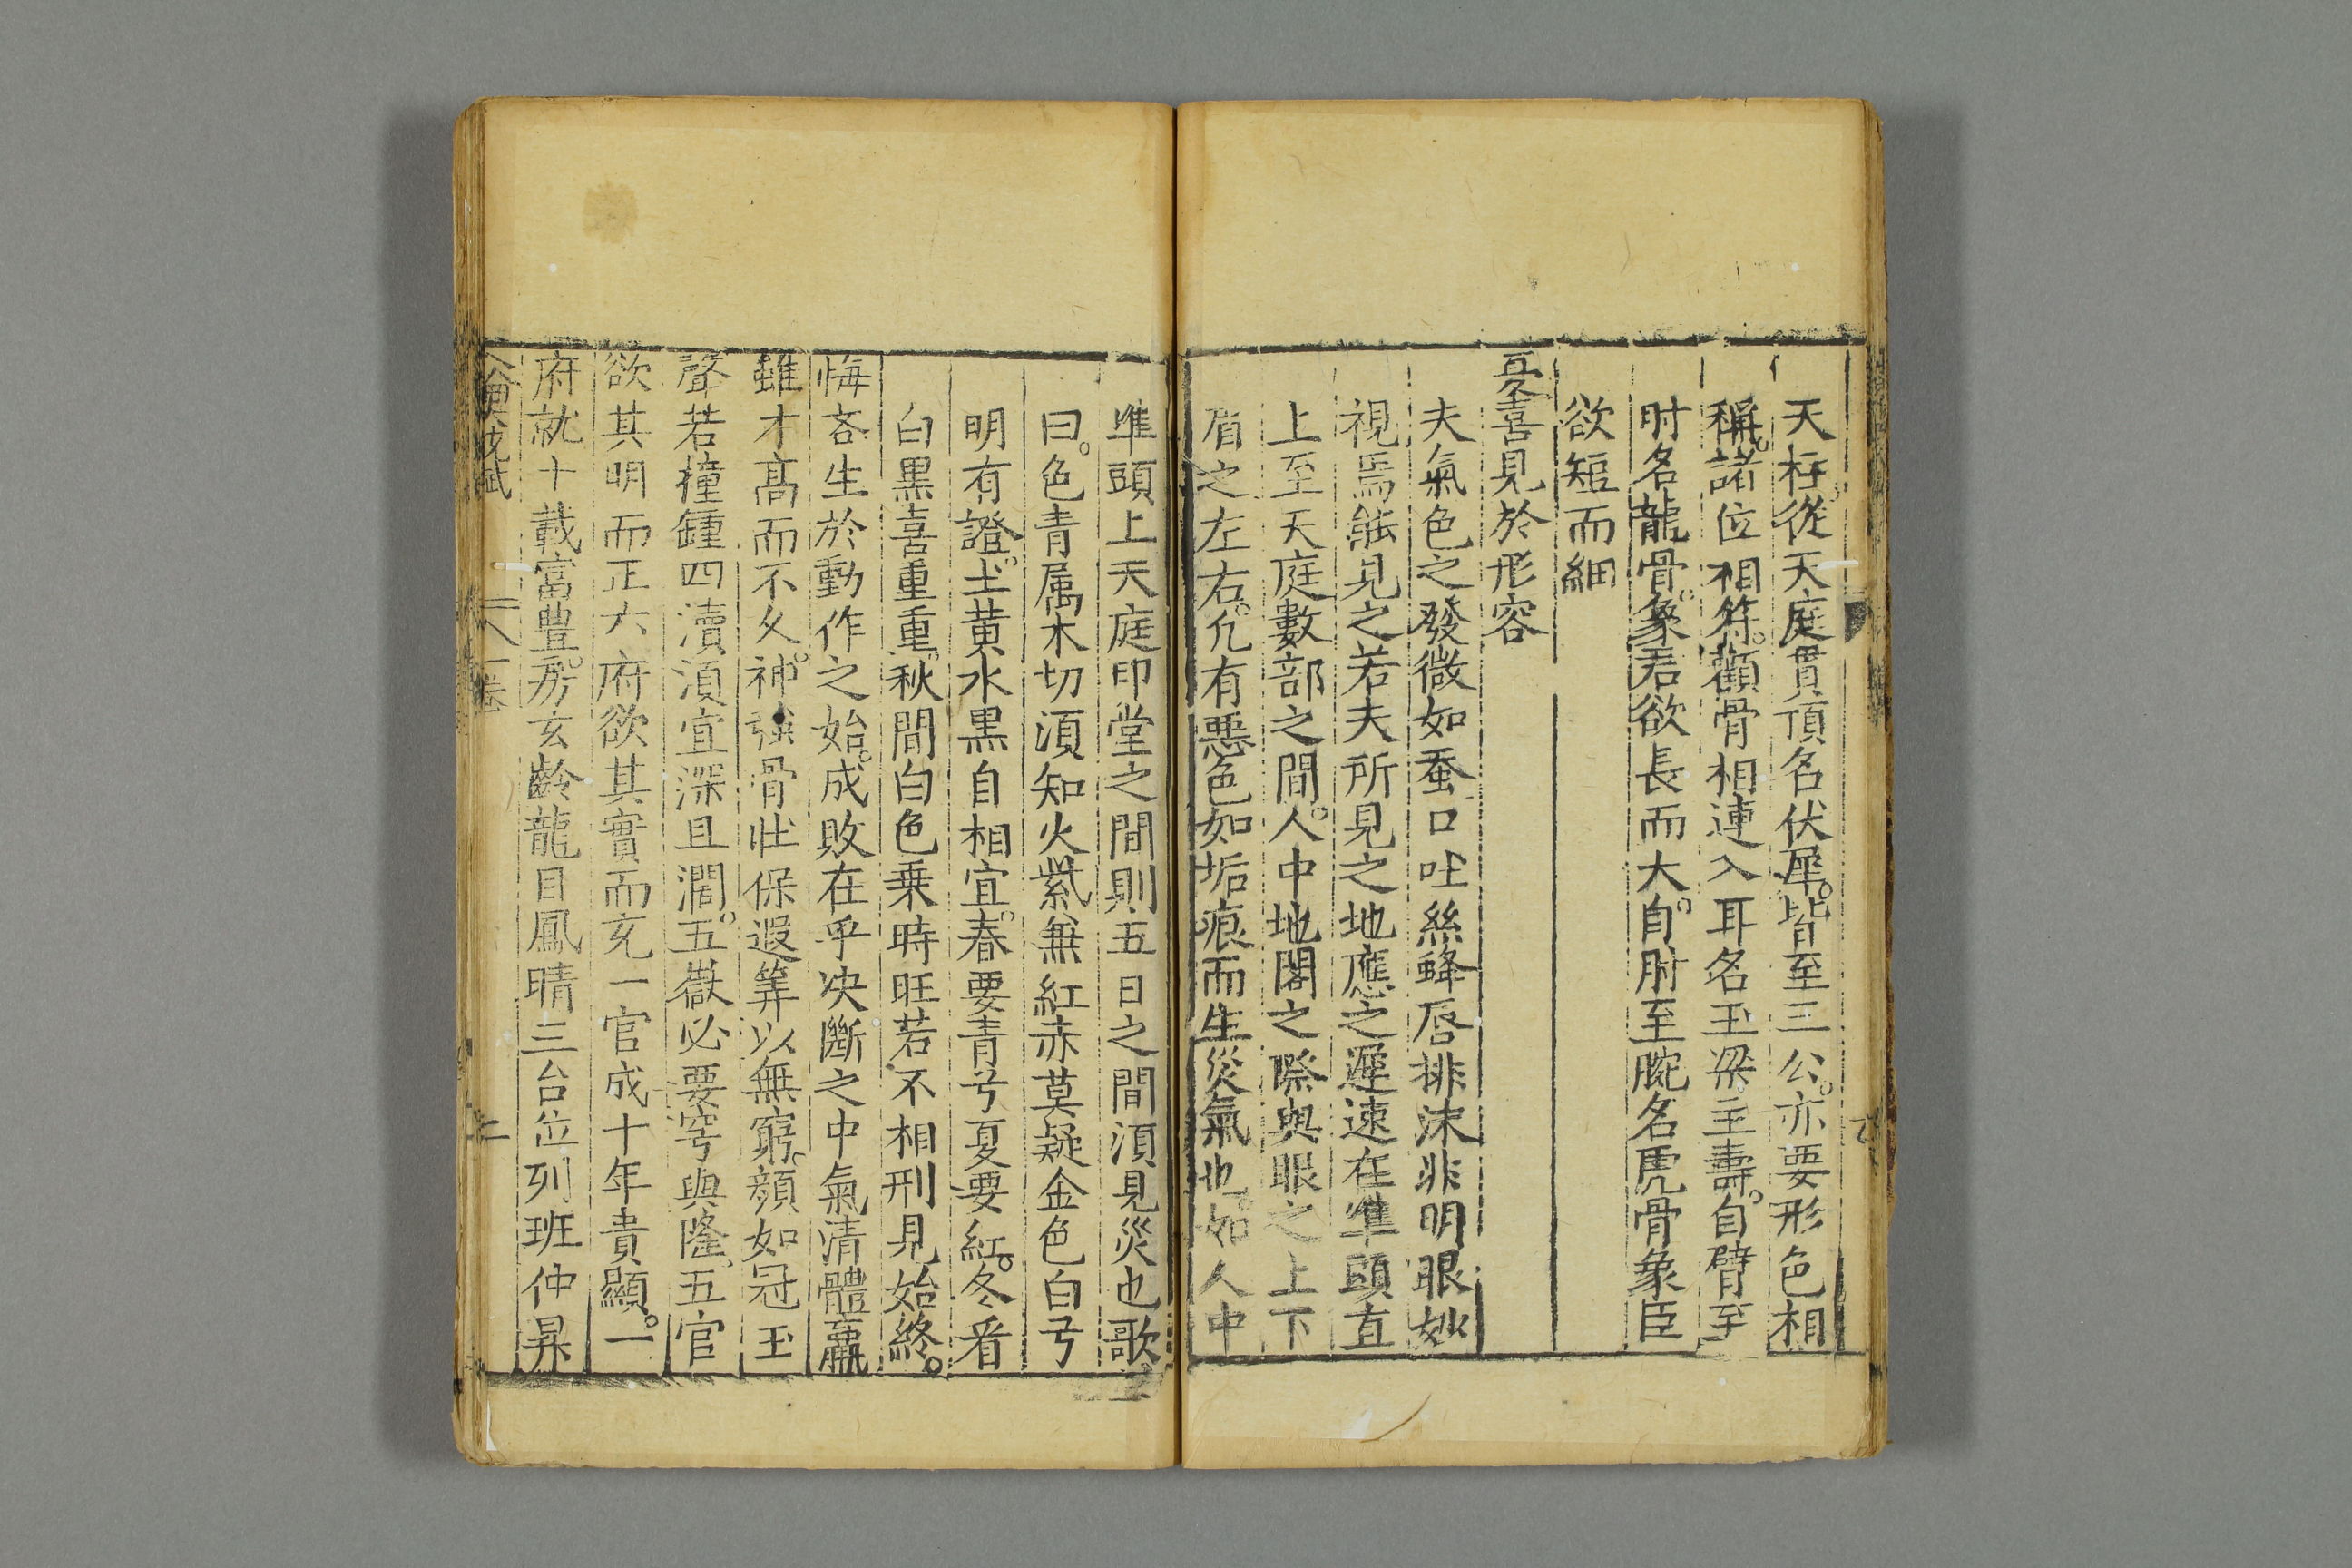 天柱從天庭貫頂名伏犀。皆至三公。亦要形色相
稱。諸位相等。顴骨相連入耳名玉梁主壽。自臂至
肘名龍骨。象君欲長而大。自肘至腕名虎骨象臣
欲短而細
憂喜見於形容
夫氣色之發微如蚕口吐絲蜂唇排沫非明眼妙
視焉能見之若夫所見之地應之遲速在準頭直
上至天庭數部之間。人中地閣之際與眼之上下
眉之左右。凢有惡色如垢痕而生災氣也。如人中
準頭上天庭印堂之間則五日之間湏見災也歌
曰。色青属木切湏知火紫無紅赤莫疑金色白兮
明有證。土黄水黒自相宜。春要青兮夏要紅。冬看
白黒喜重重。秋間白色乗時旺若不相刑見始終。
悔吝生於動作之始。成敗在乎决斷之中氣清體羸
雖才髙而不久。神強骨壮保遐筭以無窮。顔如冠玉
聲若撞鍾四瀆湏宜深且濶。五嶽必要穹與隆、五官
欲其明而正六府欲其實而充一官成十年貴顯。一
府就十載富豊。房玄齡龍目鳳睛三台位列班仲昇
人倫賦
卷
七